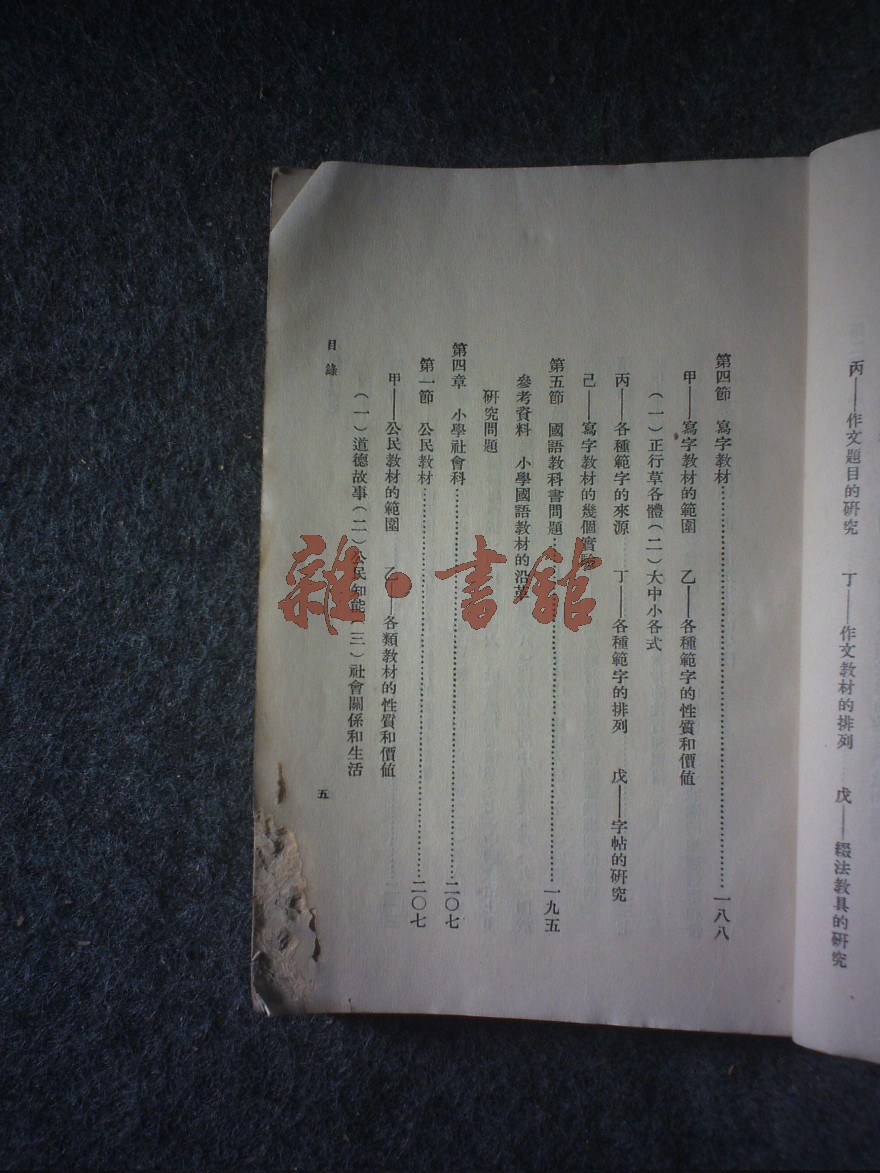 丙——作文題目的研究　丁——作文教材的排列　戊——綴法教具的研究
第四節　寫字教材……一八八
甲——寫字教材的範圍　乙——各種範字的性質和價值
（一）正行草各體（二）大中小各式
丙——各種範字的來源　丁——各種範字的排列　戊——字帖的研究
己——寫字教材的幾個實驗
第五節　國語教科書問題……一九五
參考資料　小學國語教材的沿革
研究問題
第四章　小學社會科……二〇七
第一節　公民教材……二〇七
甲——公民教材的範圍　乙——各類教材的性質和價值
（一）道德故事（二）公民知能（三）社會關係和生活
目錄
五
雜·書館